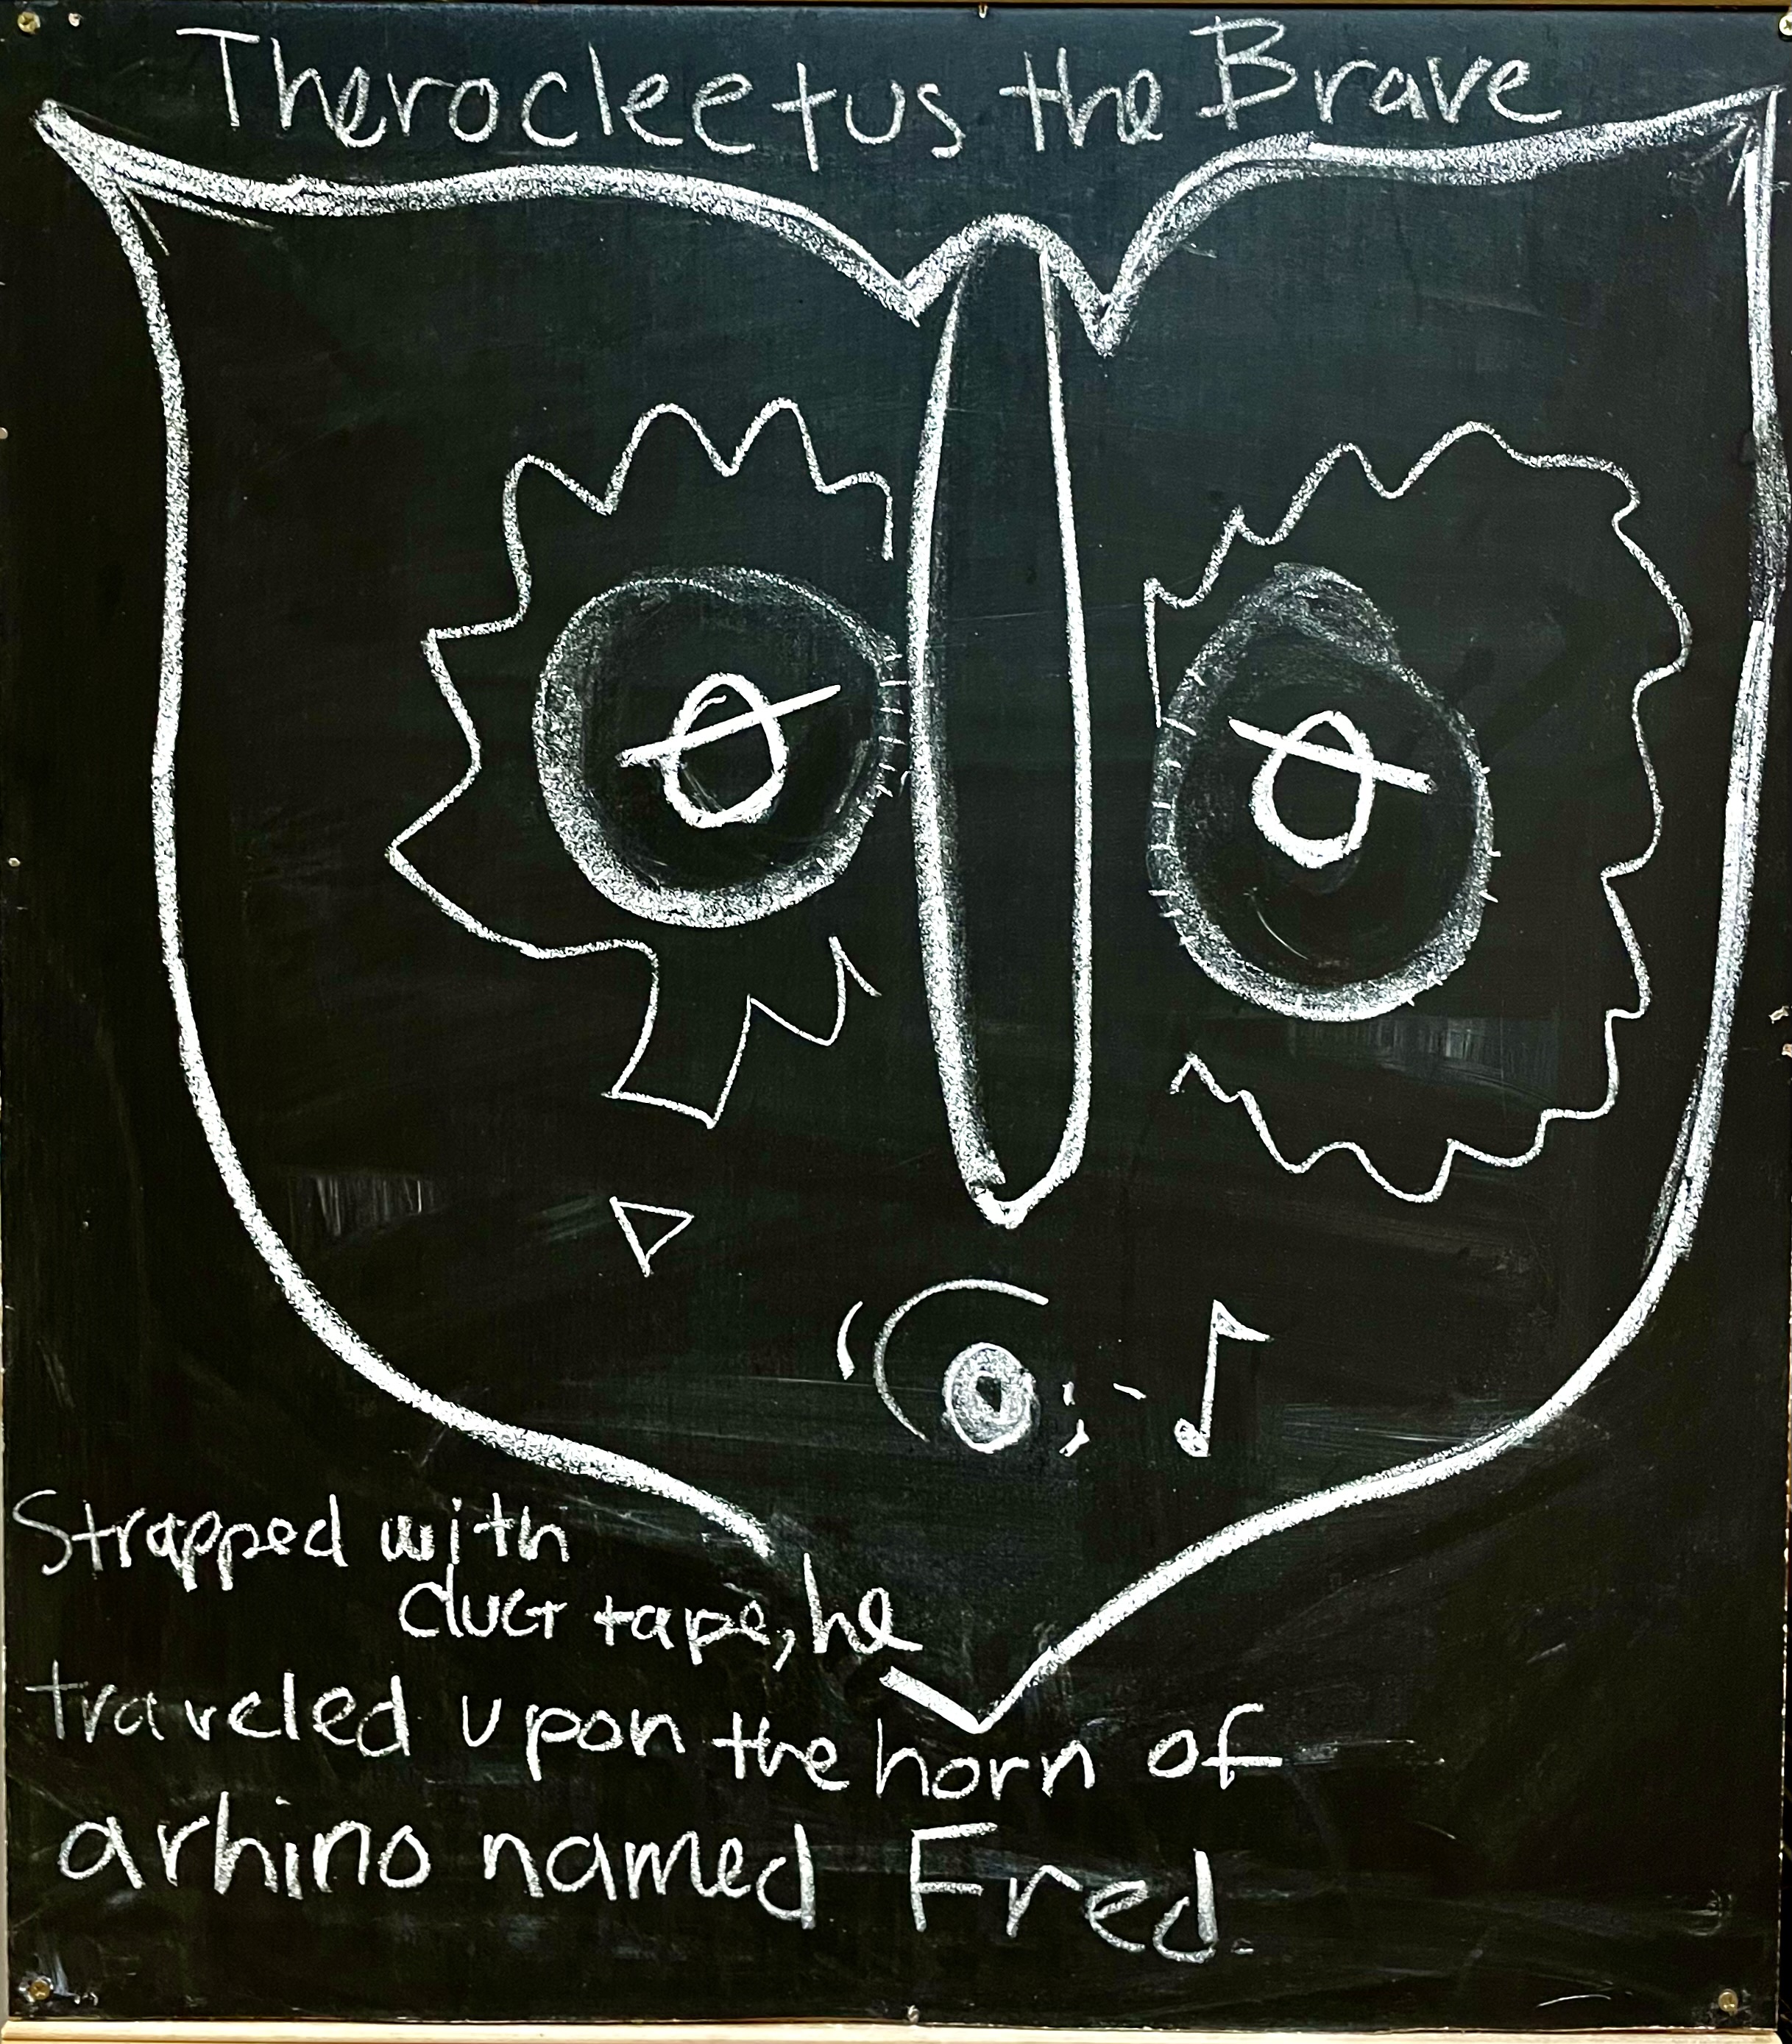 Therocleetus the Brave
Strapped with
duct tape, he
traveled upon the horn of
arhino named Fred.